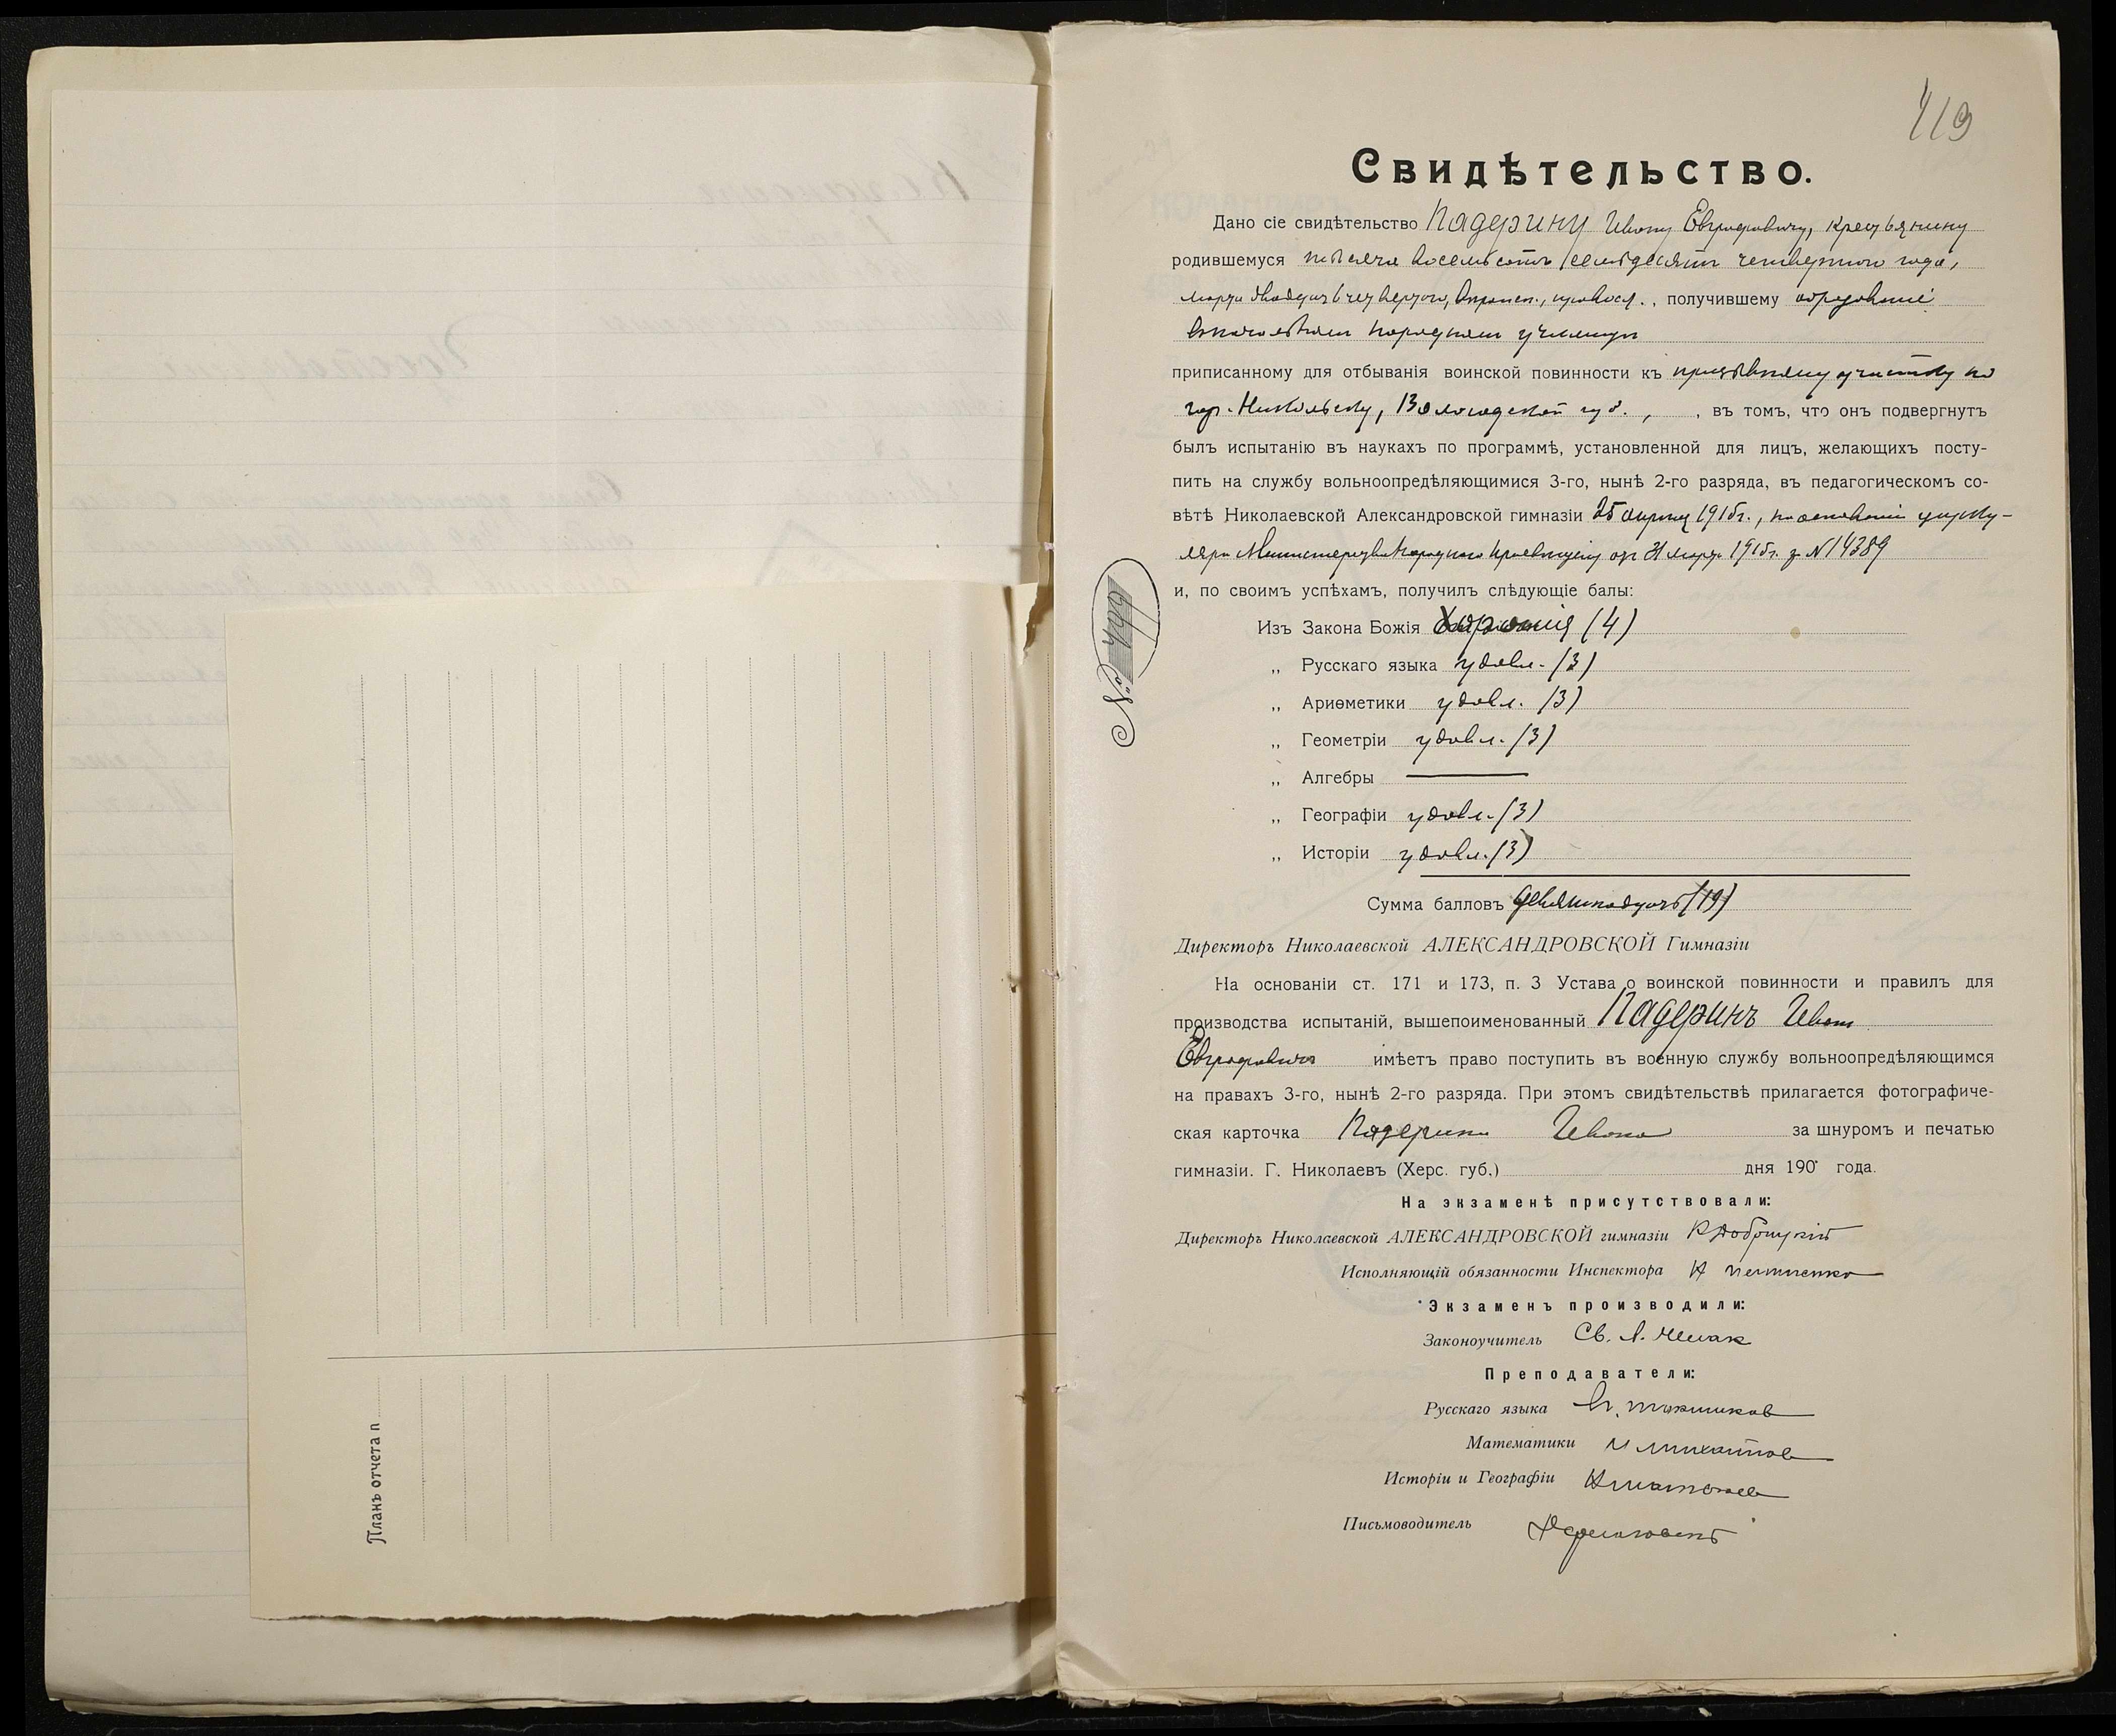 Планъ отчета п
119
Свидѣтельство.
Дано сіе свидѣтельство Падерину Ивану Евграфовичу, крестьянину
родившемуся тысяча восемьсотъ семьдесятъ четвертого года,
марта двадцать четвертого, правосл., получившему образованіе
народномъ училищѣ
приписанному для отбыванія воинской повинности къ призывному участку по
гор. Никольску, Вологодской губ., , въ томъ, что онъ подвергнутъ
былъ испытанію въ наукахъ по программѣ, установленной для лицъ, желающихъ посту-
пить на службу вольноопредѣляющимися 3-го, нынѣ 2-го разряда, въ педагогическомъ со-
вѣтѣ Николаевской Александровской гимназіи 25 1915г., на основаніи цирку-
ляра Министерства Народнаго Просвѣщенія отъ 31 марта 1915г. за N14389
и, по своимъ успѣхамъ, получилъ слѣдующіе балы:
№
Изъ Закона Божія (4)
„ Русскаго языка удовл. (3)
„ Ариѳметики удовл. (3)
„ Геометріи удовл. (3)
„ Алгебры
„ Географіи удовл. (3)
„ Исторіи удовл. (3)
Сумма балловъ девятнадцать (19)
Директоръ Николаевской АЛЕКСАНДРОВСКОЙ Гимназіи
На основаніи ст. 171 и 173, п. 3 Устава о воинской повинности и правилъ для
производства испытаній, вышепоименованный Падеринъ Иванъ
Евграфовичъ имѣетъ право поступить въ военную службу вольноопредѣляющимся
на правахъ 3-го, нынѣ 2-го разряда. При этомъ свидѣтельствѣ прилагается фотографиче-
ская карточка Падерина Ивана за шнуромъ и печатью
гимназіи. Г. Николаевъ (Херс. губ.) дня 190 года.
На экзаменѣ присутствовали:
Директоръ Николаевской АЛЕКСАНДРОВСКОЙ гимназіи
Исполняющій обязанности Инспектора Н
Экзаменъ производили:
Законоучитель Св. Л.
Преподаватели:
Русскаго языка
Математики
Исторіи и Географіи
Письмоводитель